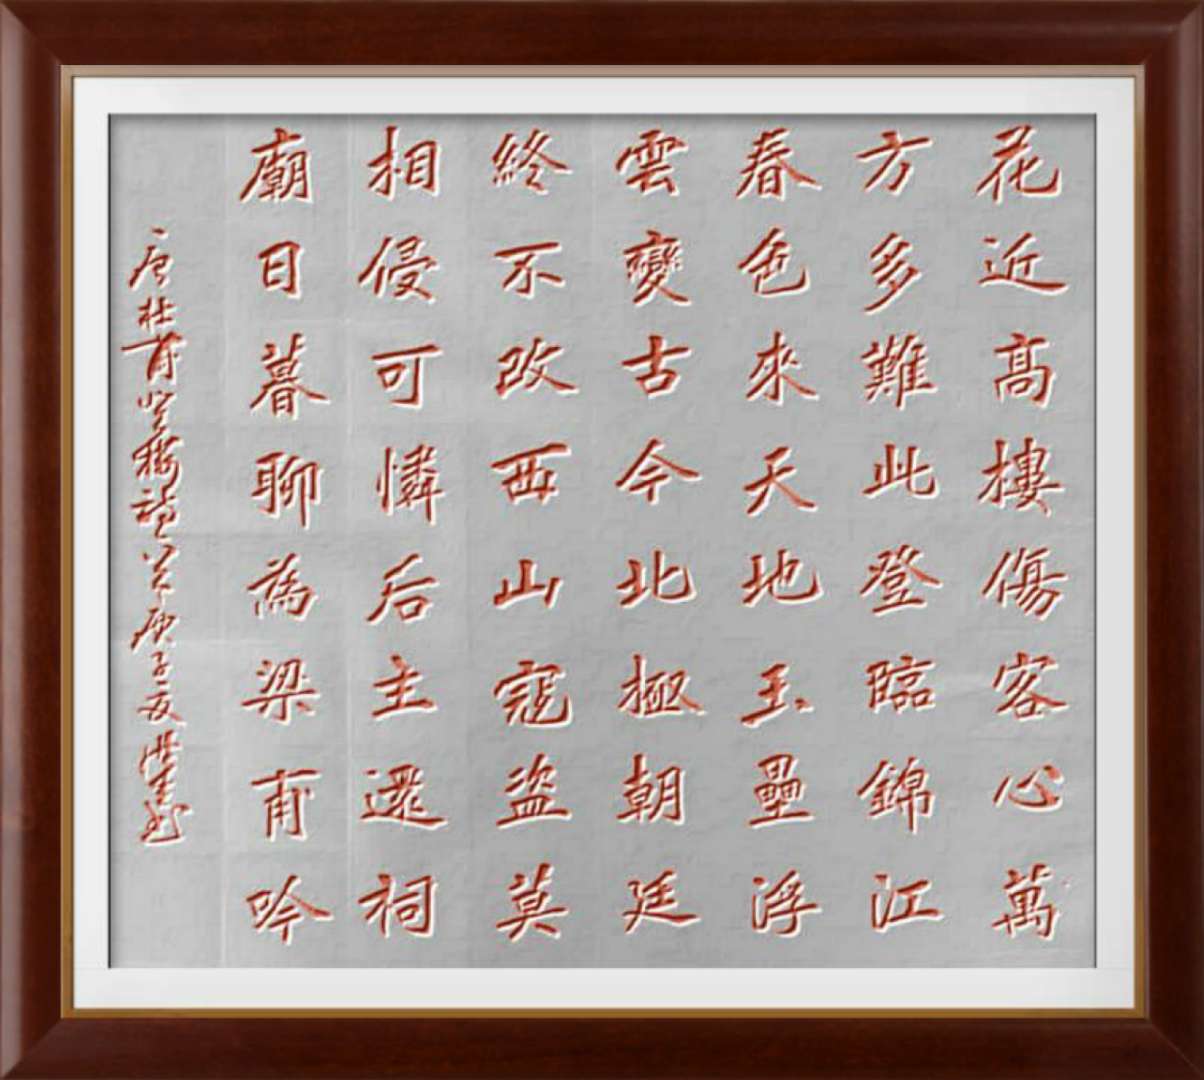 花近高樓傷客心萬
方多難此登臨錦江
春色來天地玉壘浮
雲變古今北極朝廷
終不改西山寇盜莫
相侵可憐后主還祠
廟日暮聊為梁甫吟
唐杜甫登樓詩一首庚子夏